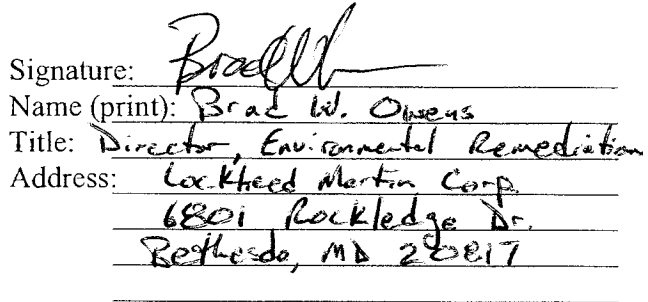 Signature: Brad W. Owens
Name (print): Brad W. Owens
Title: Director, Environmental Remediation
Address: Lockheed Martin Corp.
6801 Rockledge Dr.
Bethesda, MD 20817